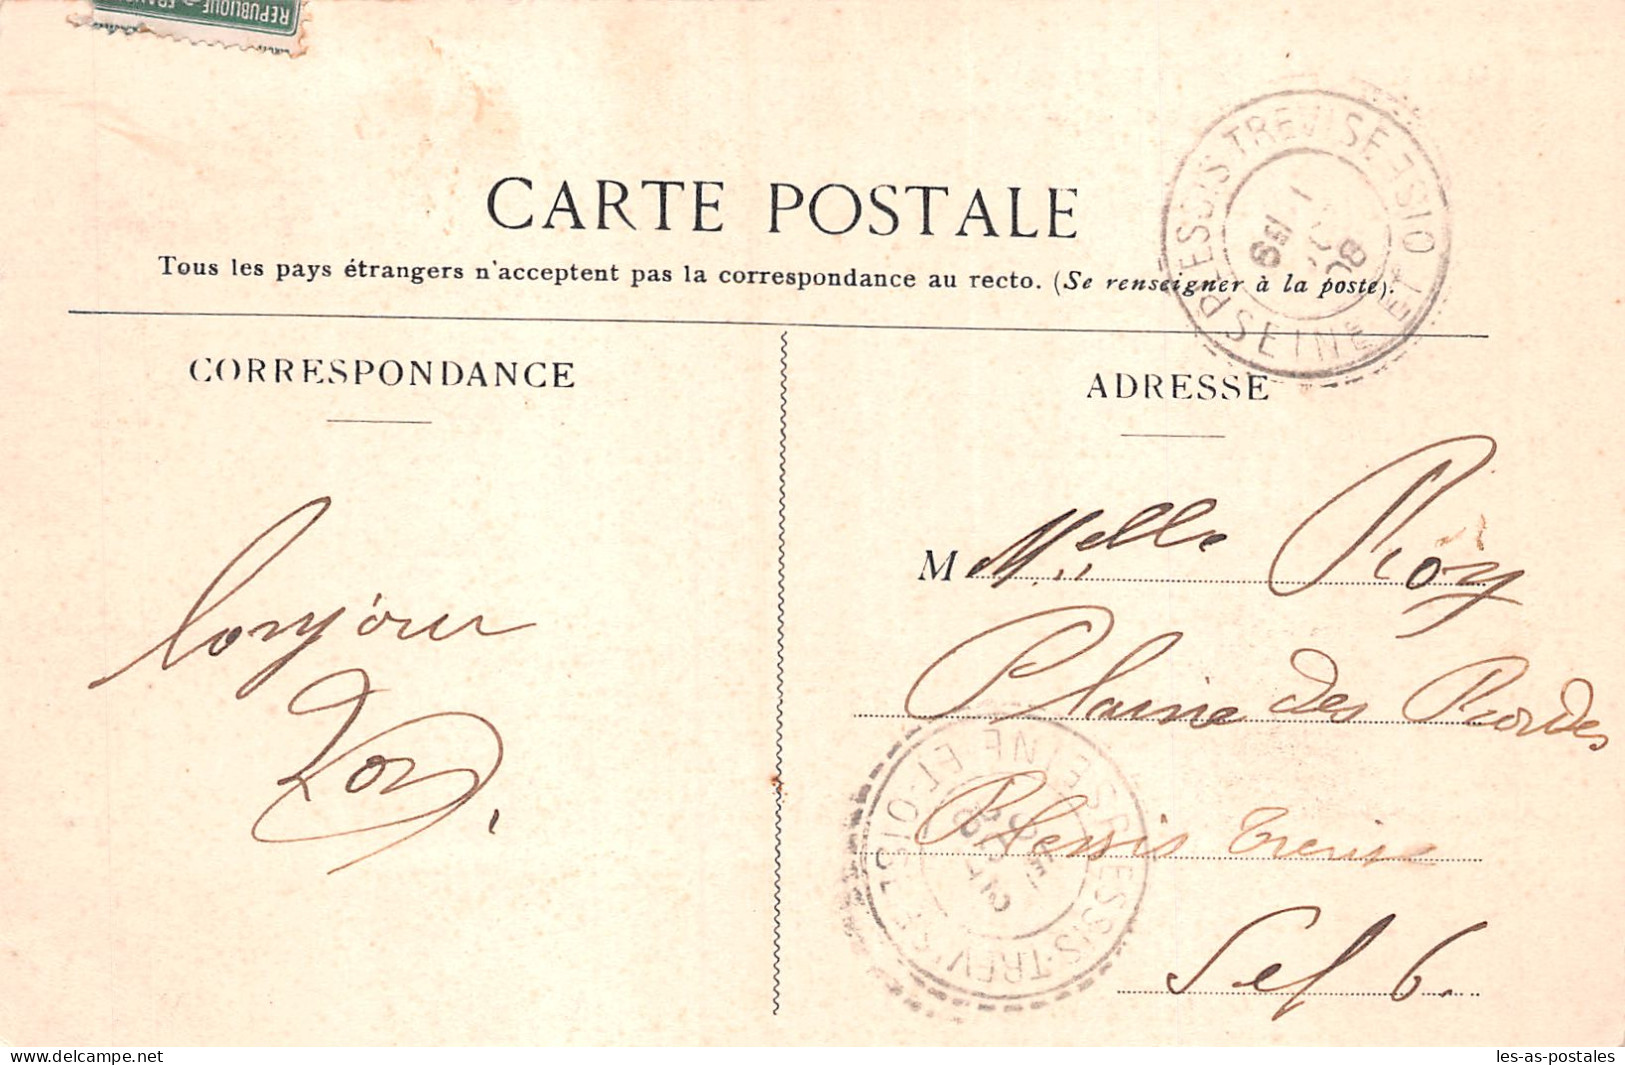 REPUBLIQUE FRANÇ
PLESSIS TREVISE
SEINE ET OISE
CARTE POSTALE
Tous les pays étrangers n'acceptent pas la correspondance au recto. (Se renseigner à la poste).
CORRESPONDANCE
ADRESSE
bonjour
M Melle Roy
Plaine des Bordes
Plessis Trevise
S et
PLESSIS-TREVISE
SEINE ET OISE
les-as-postales